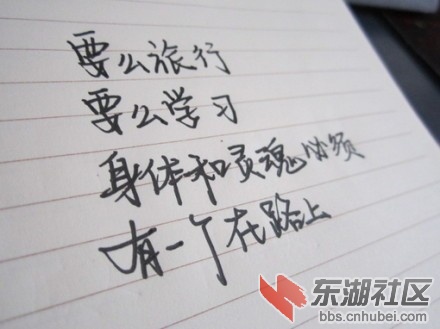 要么旅行
要么学习
身体和灵魂必须
有一个在路上
东湖社区
bbs.cnhubei.com